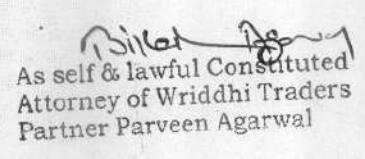 As self & lawful Constituted
Attorney of Wriddhi Traders
Partner Parveen Agarwal